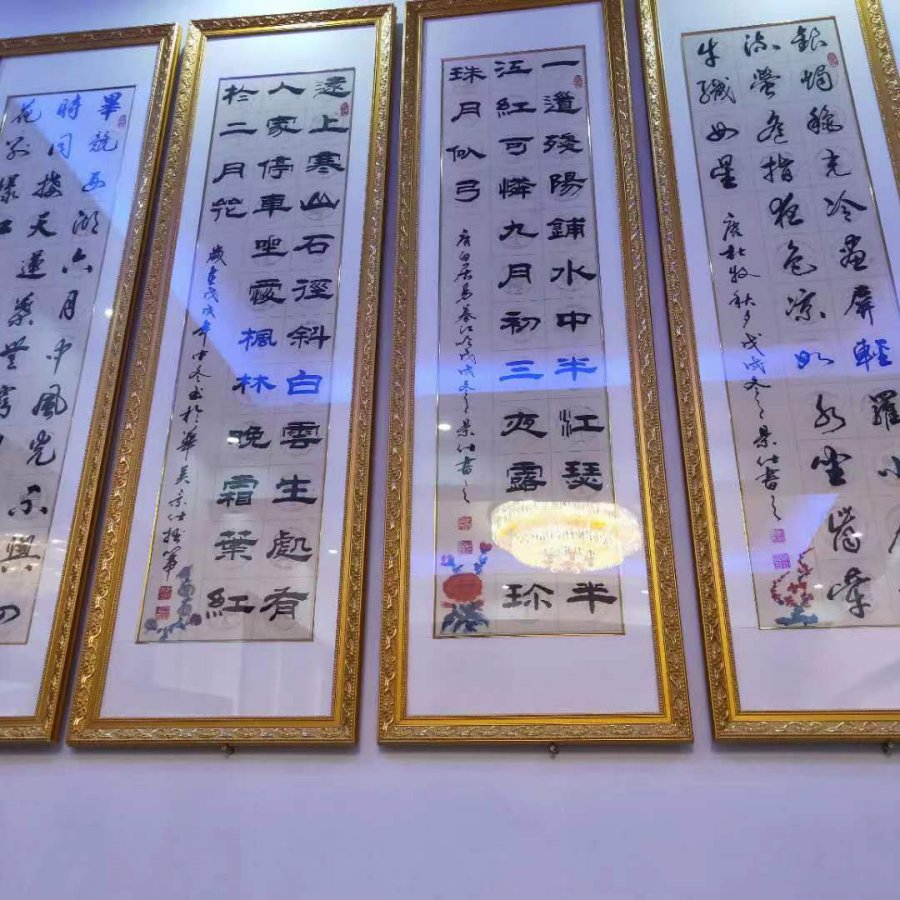 銀燭穐光冷畫屏輕羅小
流螢瑤階夜色凉如水坐看牽
牛織女星
唐杜牧秋夕戊戌冬之景仕書之
一道殘陽鋪水中半江瑟半
江紅可憐九月初三夜露珎
珠月似弓
唐白居易暮江吟戊戌冬之景仕書之
遠上寒山石徑斜白雲生處有
人家停車坐愛楓林晚霜葉紅
於二月花
歲在戊戌年中冬書於華美景仕拙筆
畢競西湖六月中風光不與四
時同接天蓮葉無窮
花別樣紅